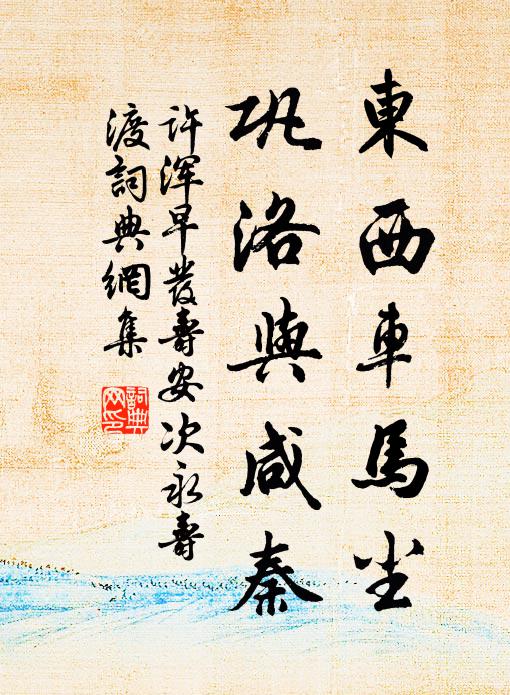 東西車馬尘
巩洛與咸秦
许浑早發壽安次永壽
渡詞典網集
詞典
网印